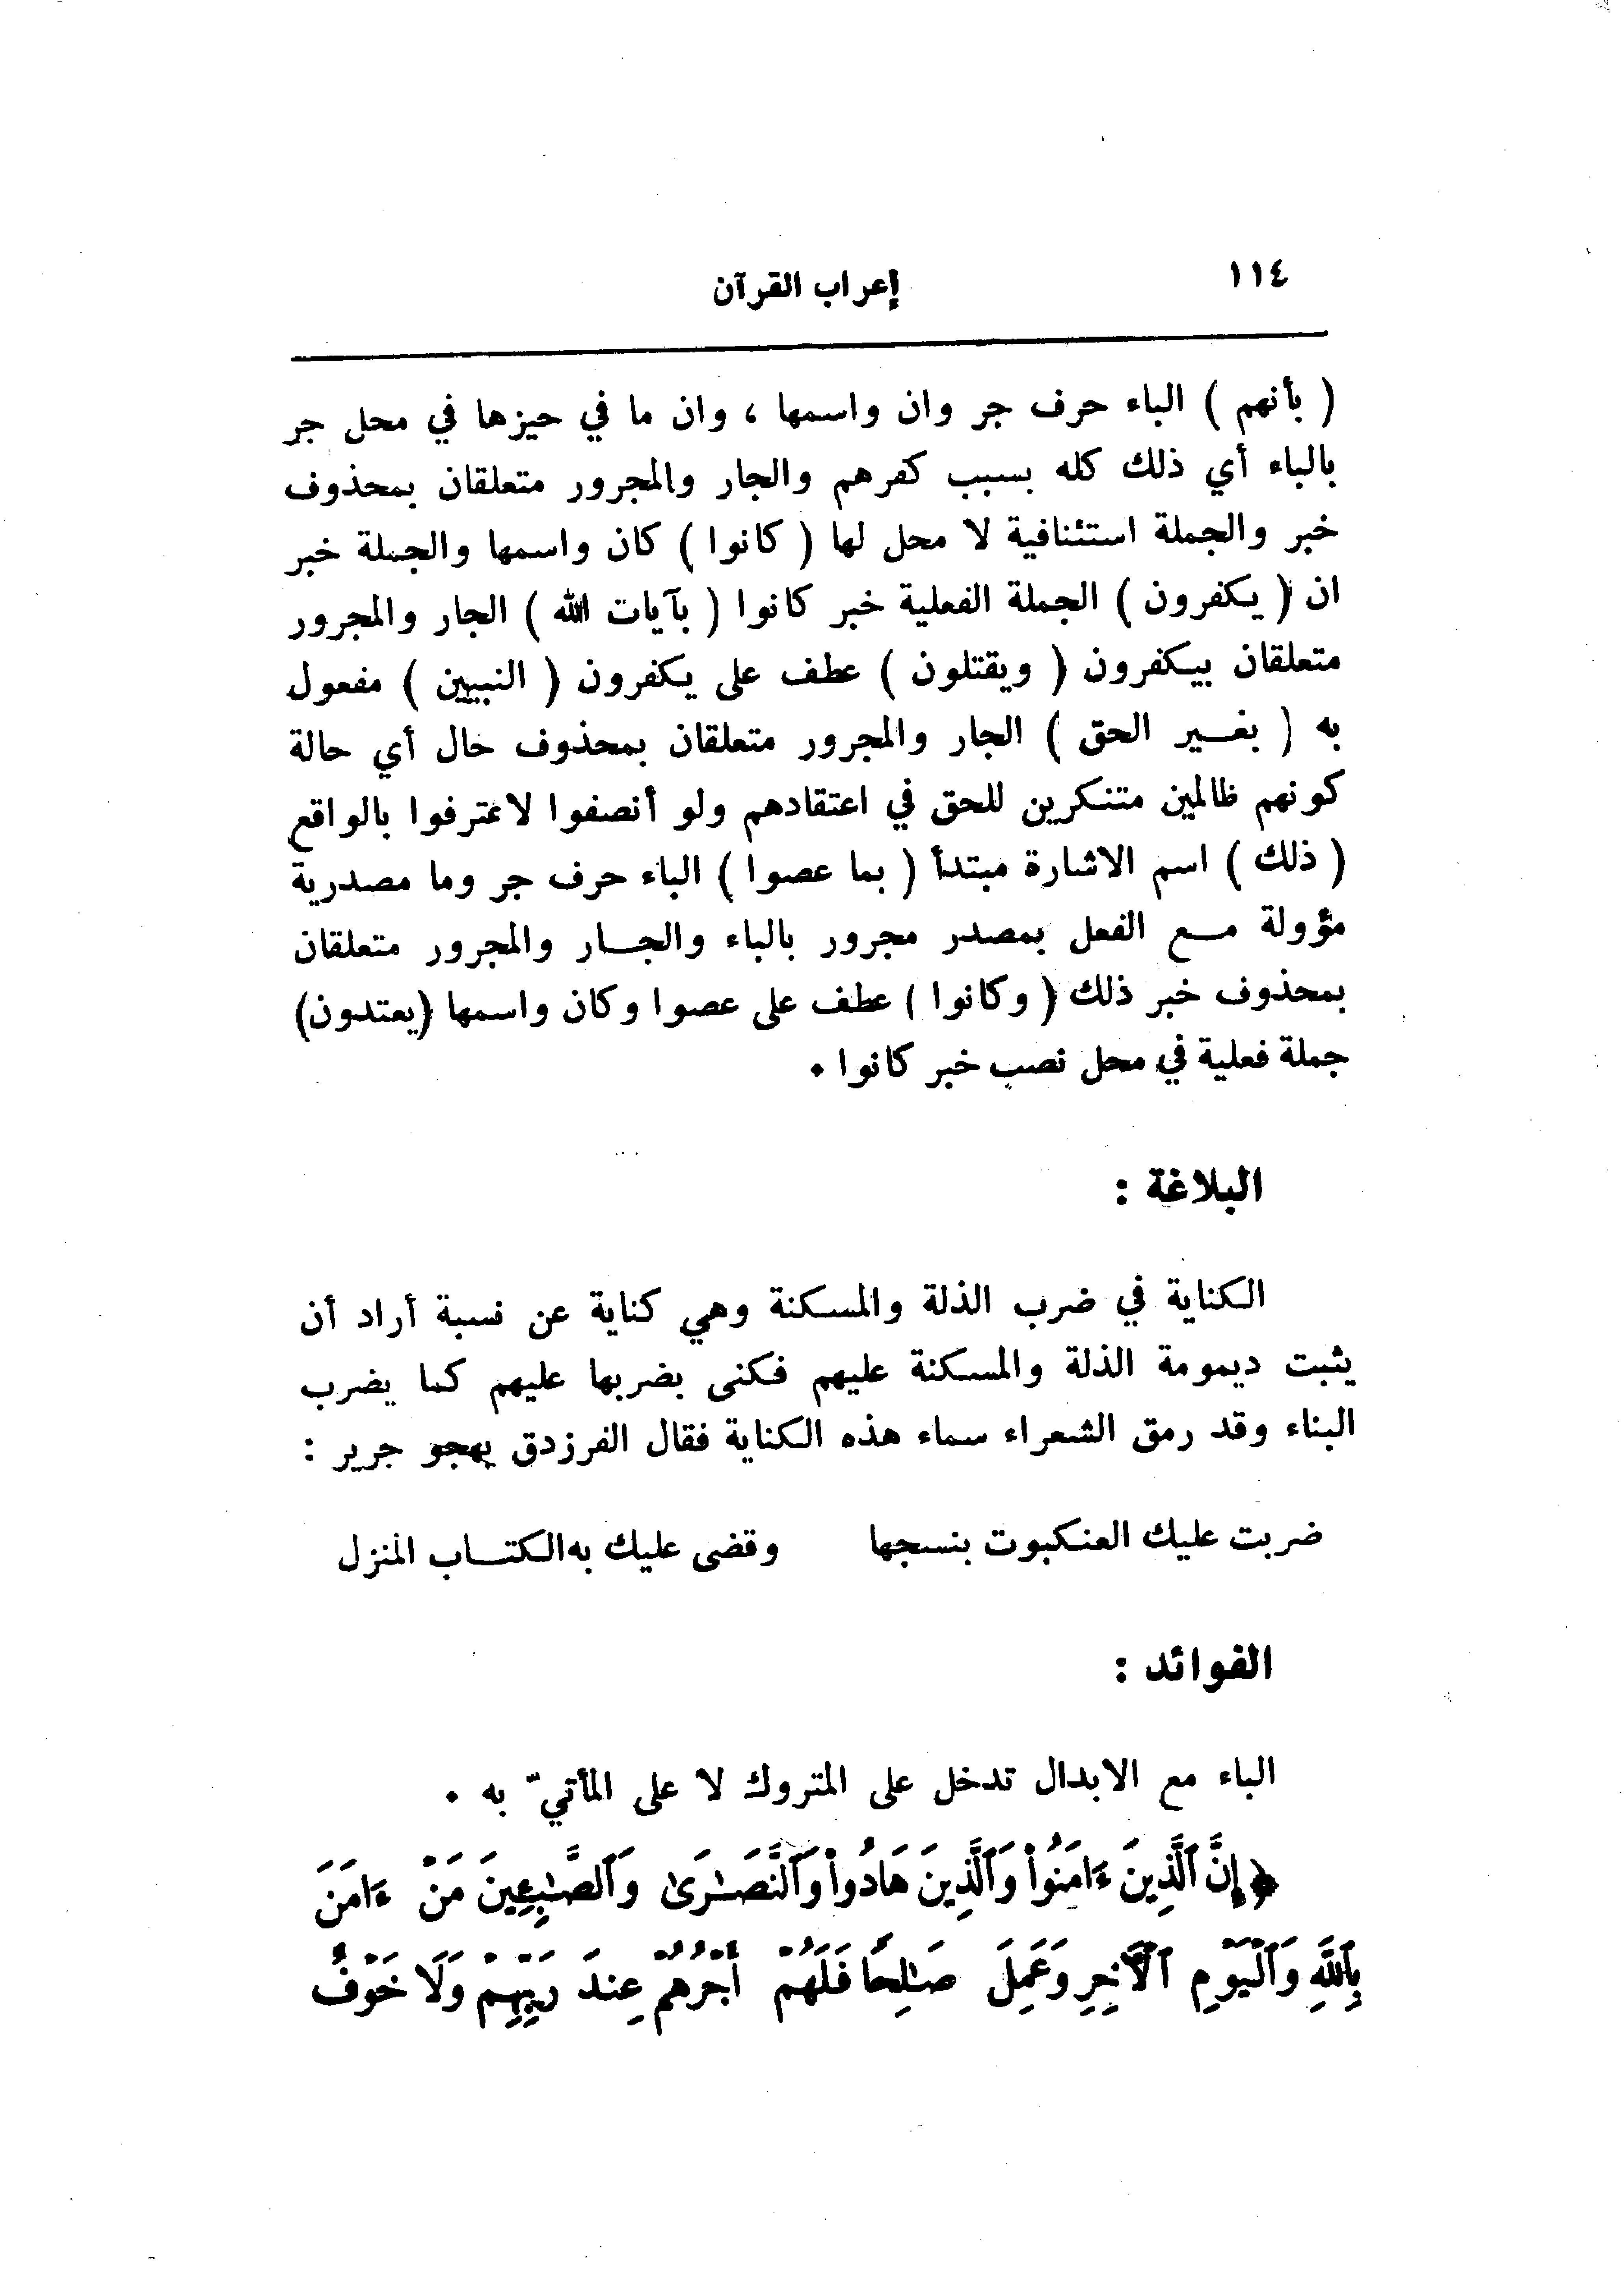 ١١٤
إعراب القرآن
( بأنهم ) الباء حرف جر وان واسمها ، وان ما في حيزها في محل جر
بالباء أي ذلك كله بسبب كفرهم والجار والمجرور متعلقان بمحذوف
خبر والجملة استئنافية لا محل لها ( كانوا ) كان واسمها والجملة خبر
ان ( يكفرون ) الجملة الفعلية خبر كانوا ( بآيات الله ) الجار والمجرور
متعلقان بيكفرون ( ويقتلون ) عطف على يكفرون ( النبيين ) مفعول
به ( بغير الحق ) الجار والمجرور متعلقان بمحذوف حال أي حالة
كونهم ظالمين متنكرين للحق في اعتقادهم ولو أنصفوا لاعترفوا بالواقع
( ذلك ) اسم الاشارة مبتدأ ( بما عصوا ) الباء حرف جر وما مصدرية
مؤولة مع الفعل بمصدر مجرور بالباء والجار والمجرور متعلقان
بمحذوف خبر ذلك ( وكانوا ) عطف على عصوا وكان واسمها (يعتدون)
جملة فعلية في محل نصب خبر كانوا .
البلاغة :
الكناية في ضرب الذلة والمسكنة وهي كناية عن نسبة أراد أن
يثبت ديمومة الذلة والمسكنة عليهم فكنى بضربها عليهم كما يضرب
البناء وقد رمق الشعراء سماء هذه الكناية فقال الفرزدق يهجو جرير :
ضربت عليك العنكبوت بنسجها وقضى عليك به الكتاب المنزل
الفوائد :
الباء مع الابدال تدخل على المتروك لا على المأتيّ به .
﴿ إِنَّ ٱلَّذِينَ ءَامَنُوا۟ وَٱلَّذِينَ هَادُوا۟ وَٱلنَّصَـٰرَىٰ وَٱلصَّـٰبِـِٔينَ مَنْ ءَامَنَ
بِٱللَّهِ وَٱلْيَوْمِ ٱلْـَٔاخِرِ وَعَمِلَ صَـٰلِحًا فَلَهُمْ أَجْرُهُمْ عِندَ رَبِّهِمْ وَلَا خَوْفٌ